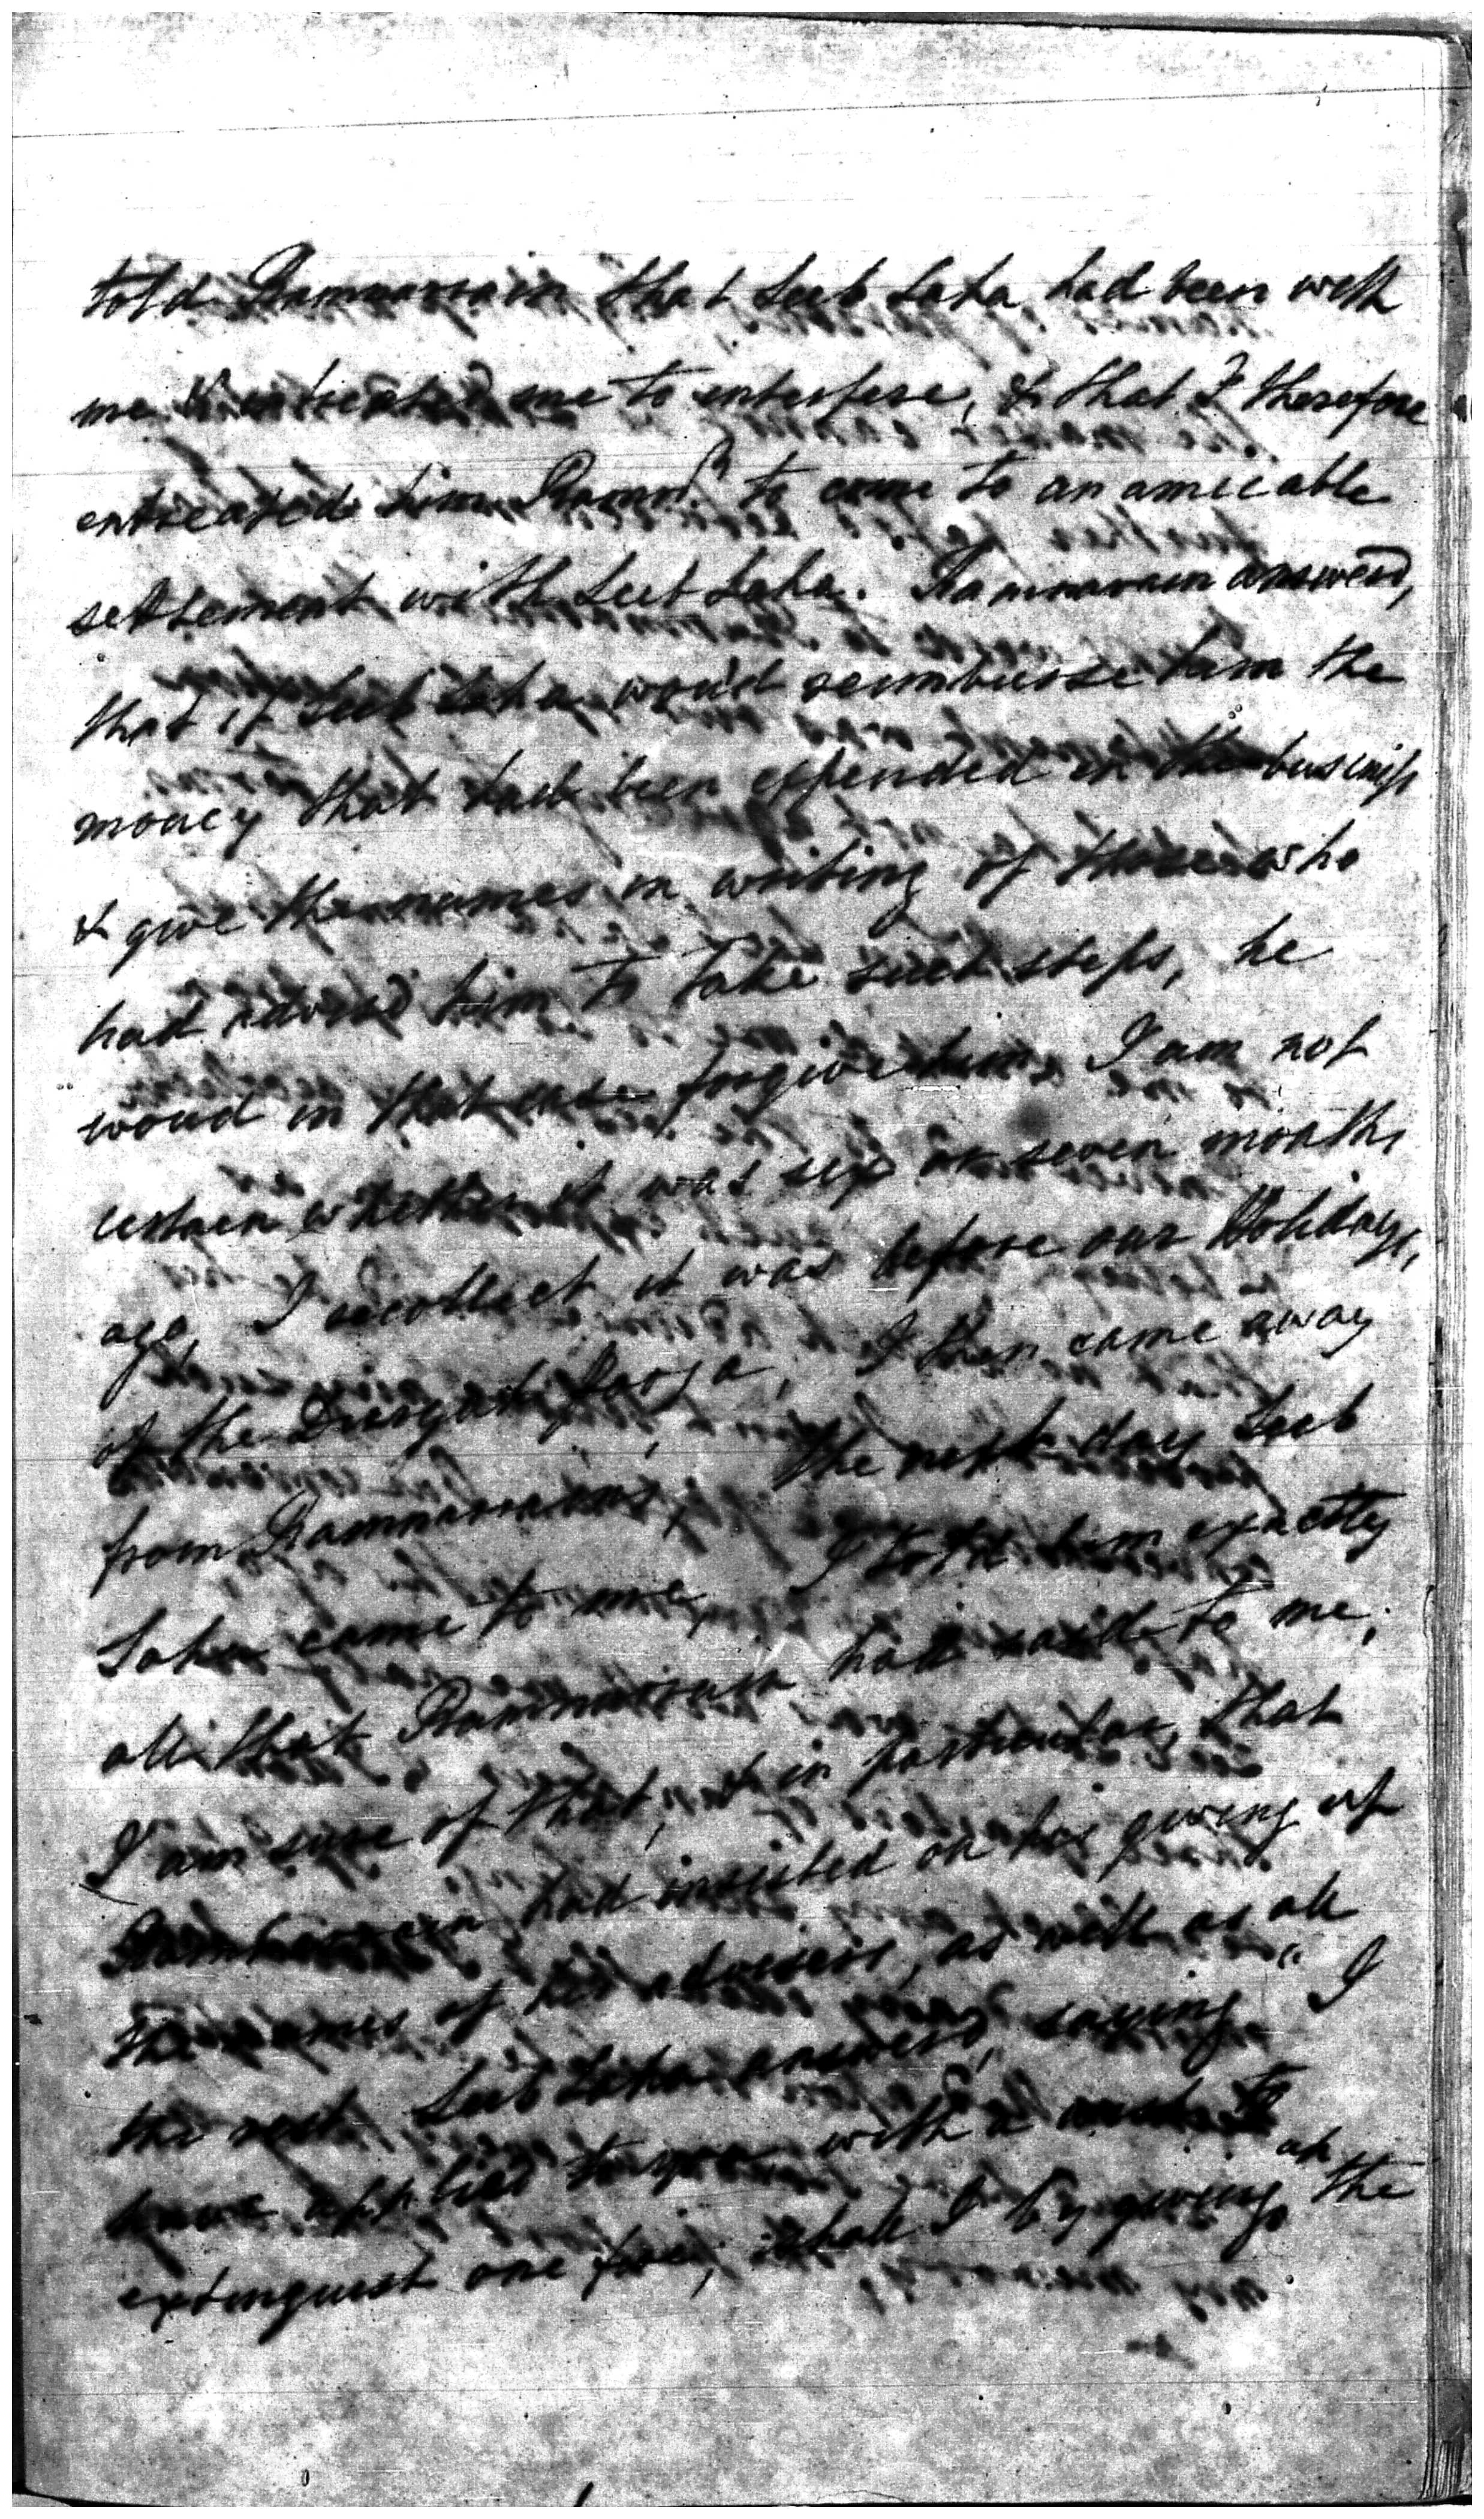 told Ramnarrain that Seeb Saha had been with
me & entreated me to interfere, & that I therefore
entreated him Ramn.n to come to an amicable
settlement with Seeb Saha. Ramnarrain answerd,
that if Seeb Saha wou'd reimburse him the
money that had been expended in the business
& give the names in writing of those who
had advised him to take such steps, he
woud in that case forgive him. I am not
certain whether it was six or seven months
ago, I recollect it was before our Holidays,
of the Durgah Pooja, I then came away
from Ramnarrains, The next day Seeb
Saha came to me, I told him exactly
all that Ramnarrain had said to me,
I am sure of that, & in particular, that
Ramnarrain had insisted on his giving up
the names of his advisers, as well as all
the rest. Seeb Saha answerd, saying "I
have applied to you with a wish to
extinguish one fire, shall I by giving up the